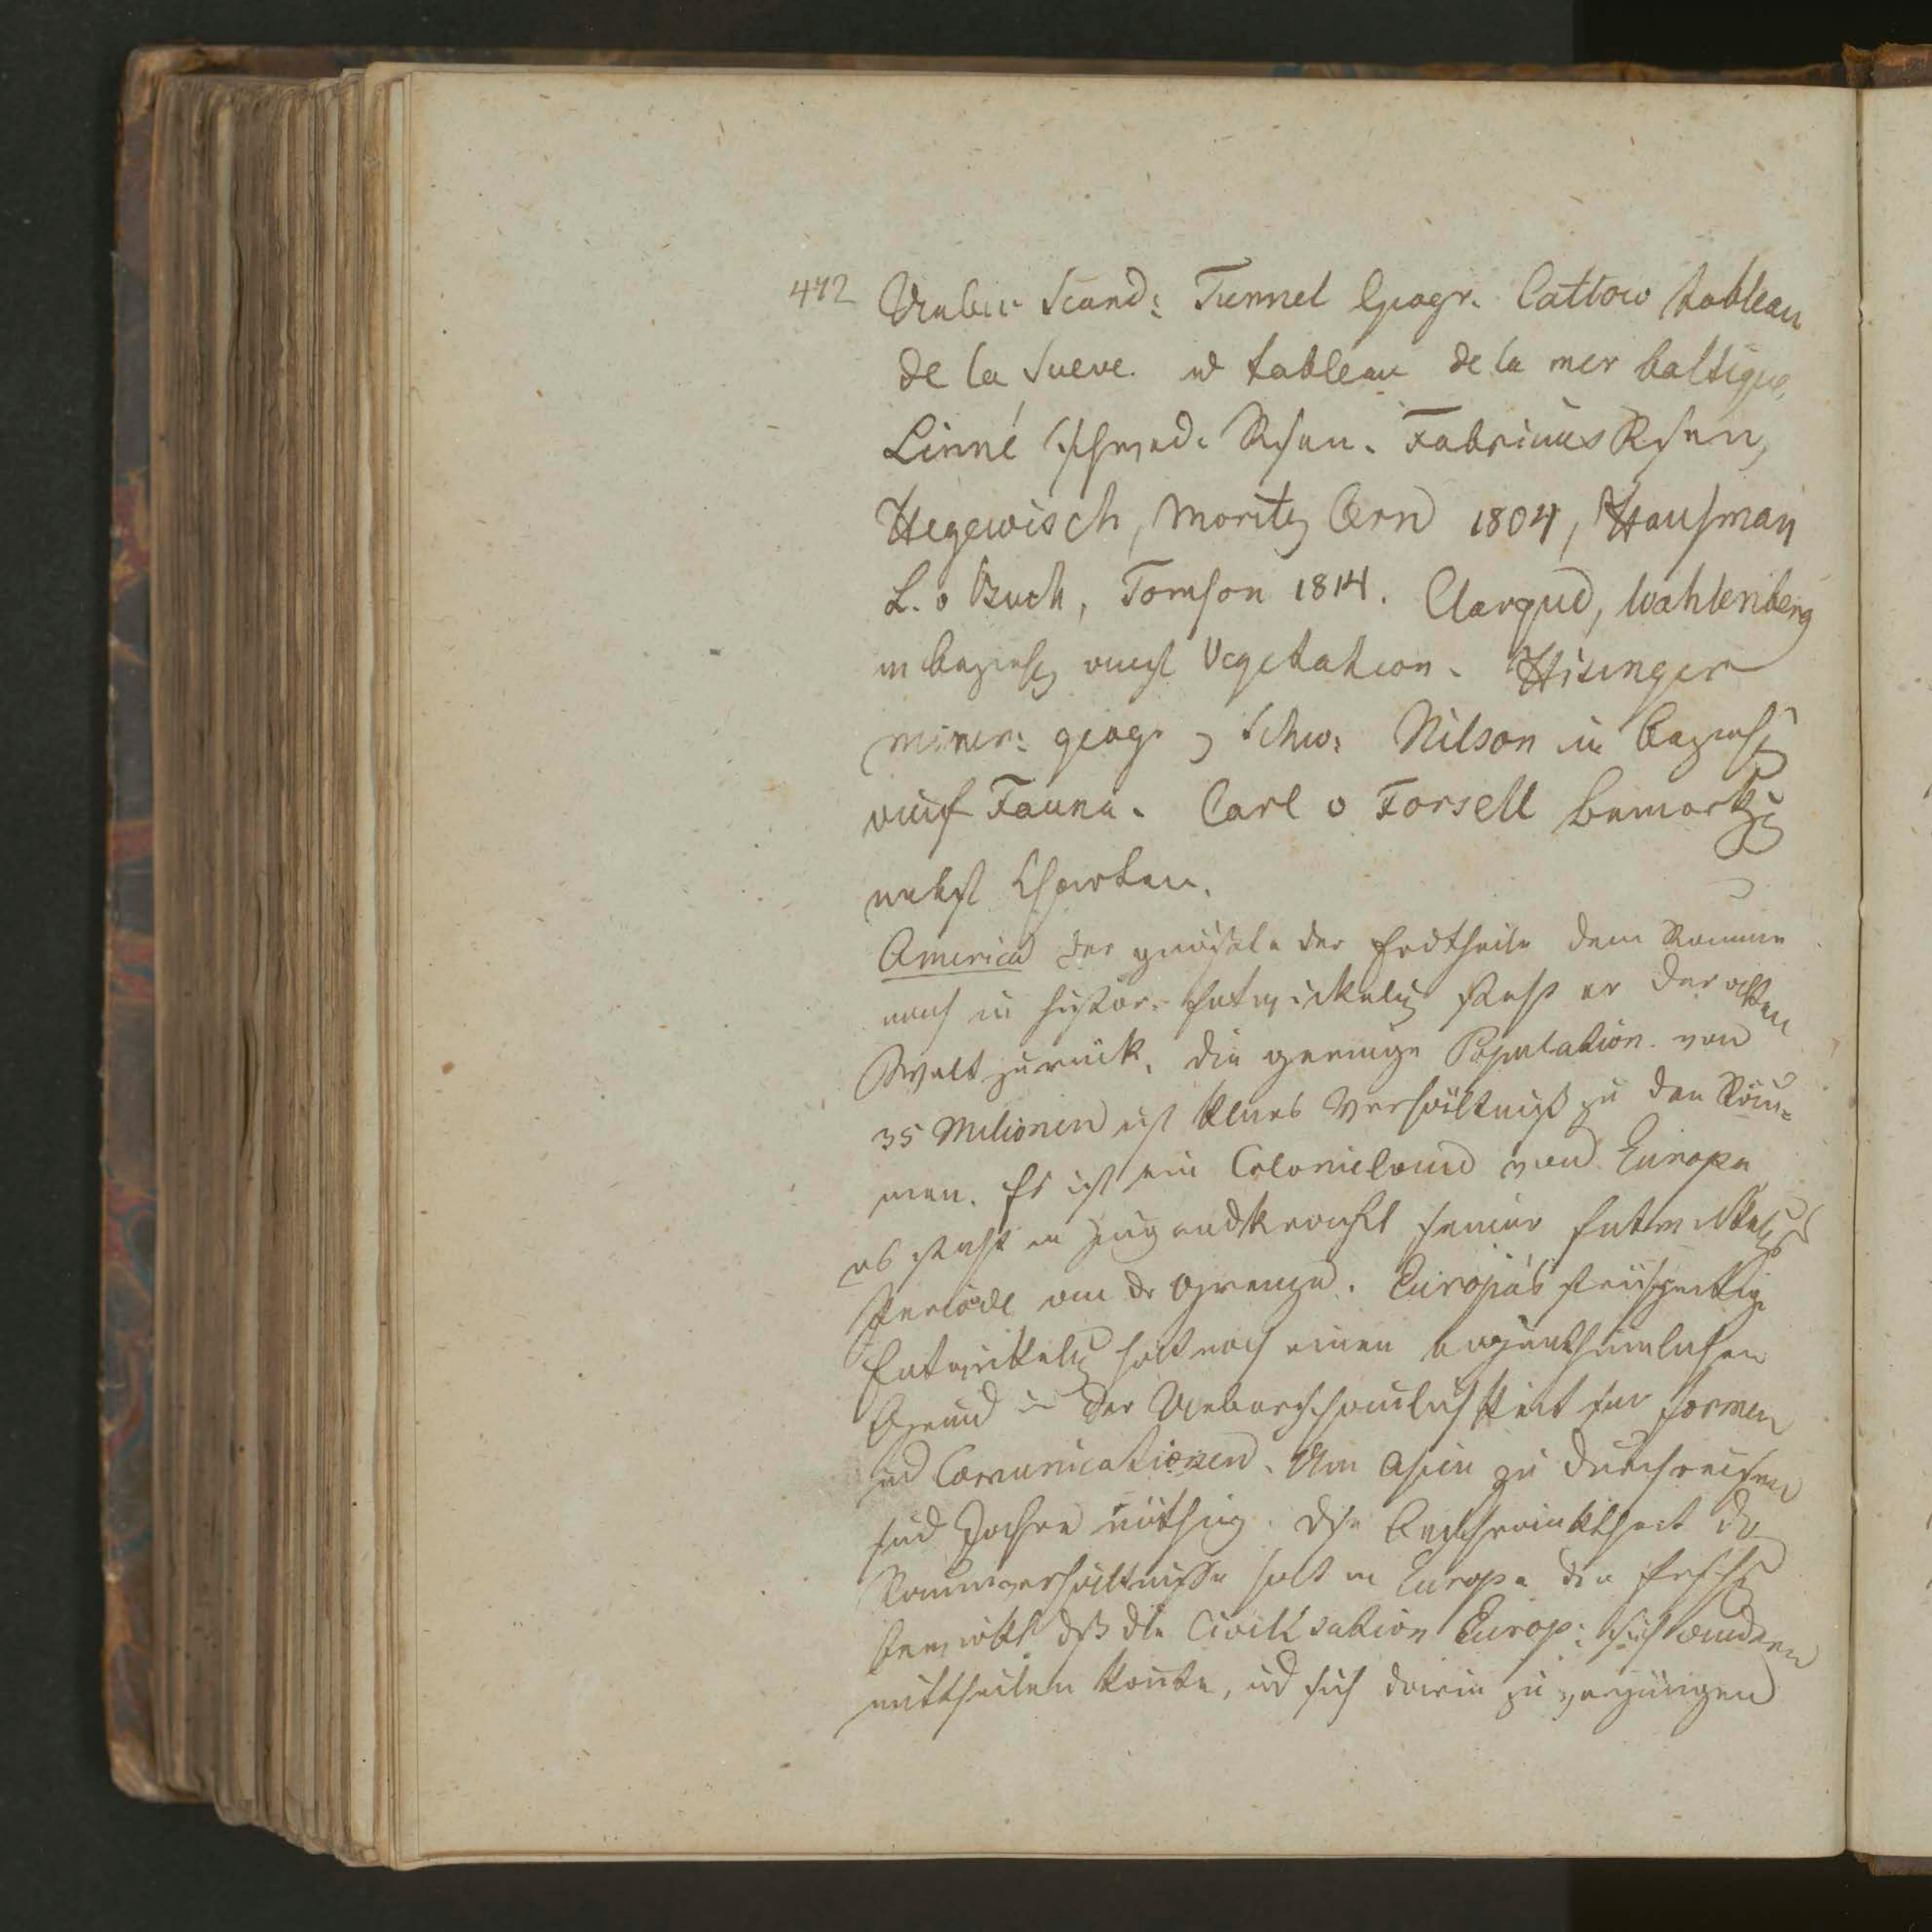 472 Ueber Scand: Tunnel Geogr. Cattow tableau
de la Sueve. u tableau de la mer baltique,
Linné schwed. Reisen. Fabricius Reisen,
Hegewisch, Moritz Arnd 1804, Hausman
L. v Buch, Tomson 1814. Wahlenberg
in Beziehg auf Vegetation. Hisinger
miner: geogr v Schw: Nilson in Beziehg
auf Fauna. Carl v Forsell Bemerkg
nebst Charten.
America der grösste der Erdtheile dem Raume
nach in histor. Entwickelug steht er der alten
Welt zurück, die geringe Population von
35 Milionen ist kleines Verhältniß zu den Räu-
men. Es ist ein Colonieland von Europa
es steht in Jugendkraft seiner Entwickelgs
Periode an der Grenze. Europa's frühzeitige
Entwickelug hat noch einen eigenthümlichen
Grund in der Ueberschaulichkeit der Formen
ud Comunicationen. Um Asien zu durchreisen
sind Jahre nöthig. Diese Beschränktheit der
Raumverhältnisse hat in Europa die
bewirkt daß die Civilisation Europ: sich andern
mittheilen konte, ud sich darin zu verjüngen